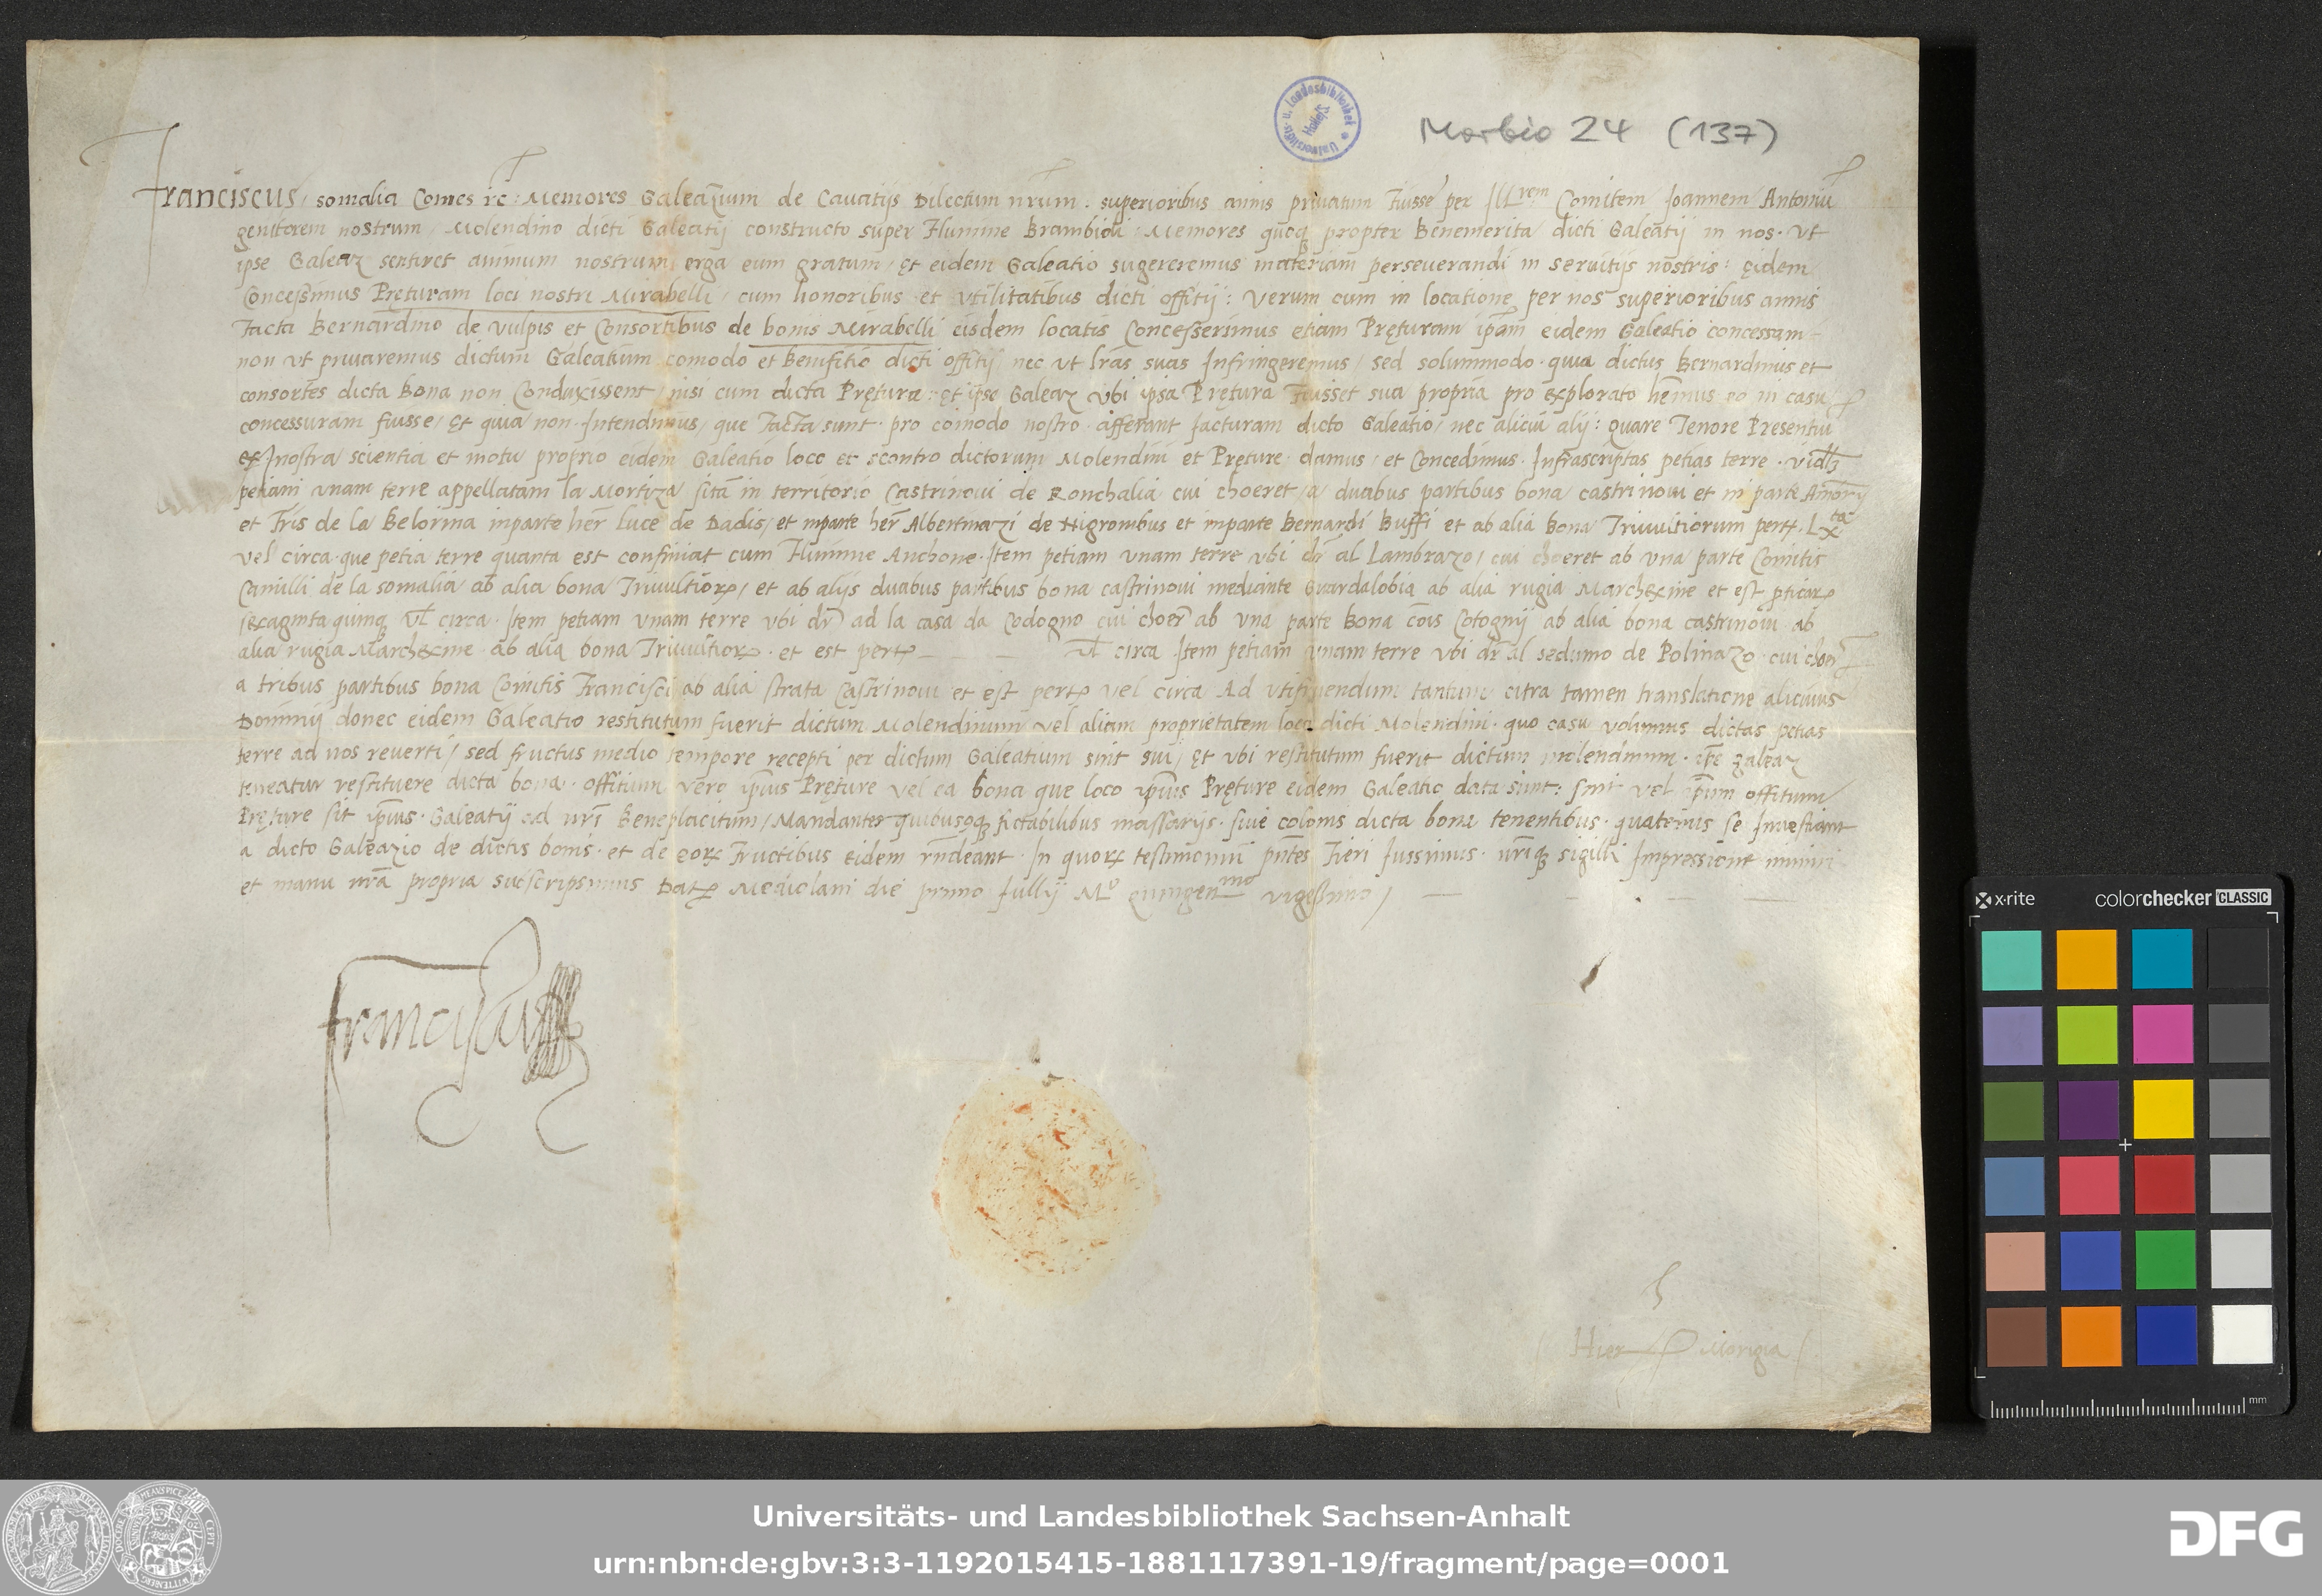 Universitäts- u. Landesbibliothek Halle/S.
Morbio 24 (137)
Franciscus somalia Comes rc: Memores Galeazium de Cavatijs Dilectum nrum. superioribus annis privatum Fuisse per Ill.rem Comitem Joannem Antoniu
genitorem nostrum, Molendino dicti Galeatij constructo super Flumine Brambioli: Memores quoq propter Benemerita dicti Galeatij in nos. vt
ipse Galeaz sentiret animum nostrum erga eum gratum, et eidem Galeatio sugereremus materiam perseverandi in servitijs nostris: eidem
Concessimus Pręturam loci nostri Mirabelli, cum honoribus et vtilitatibus dicti offitij: Verum cum in locatione per nos superioribus annis
Facta Bernardino de Vulpis et Consortibus de bonis Mirabelli eisdem locatis Concesserimus etiam Pręturam ipam eidem Galeatio concessam
non vt privaremus dictum Galeatium comodo et benifitio dicti offitij nec vt lras suas Infringeremus, sed solummodo. quia dictus Bernardinus et
consortes dicta bona non Conduxissent, nisi cum dicta Prętura: et ipse Galeaz vbi ipsa Prętura Fuisset sua propria pro explorato hemus eo in casu
concessuram fuisse, et quia non. Intendimus, que Facta sunt. pro comodo nostro. afferant jacturam dicto Galeatio, nec alicui alij: Quare Tenore Presentiu
ex nostra scientia et motu proprio eidem Galeatio loco et scontro dictorum Molendini et Pręture. damus, et Concedimus. Infrascriptas petias terre. vidlz
petiam vnam terre appellatam la Mortiza sita in territorio Castrinovi de Ronchalia cui choeret, a duabus partibus bona castrinovi et in parte
et Fris de la Belorina inparte her luce de Dadis, et inparte her Albertinazi de Nigronibus et inparte Bernardi Buffi et ab alia bona Trivultiorum pert. Lx.ta
vel circa. que petia terre quanta est confiniat cum Flumine Anchone. Item petiam vnam terre vbi dr al Lambrazo, cui choeret ab vna parte Comitis
Camilli de la somalia ab alia bona Trivultior, et ab alijs duabus partibus bona castrinovi mediante Guardalobia ab alia rugia Marchexine et est pticar
sexaginta quinq vl circa. Item petiam vnam terre vbi dr ad la casa da Codogno cui choer ab vna parte bona cois Cotognij ab alia bona castrinovi ab
alia rugia Marchexine. ab alia bona Trivultior. et est pert vl circa Item petiam vnam terre vbi dr al sedumo de Polinazo. cui choer
a tribus partibus bona Comitis Francisci ab alia strata Castrinovi et est pert vel circa Ad vtifruendum tantum citra tamen translatione alicuius
Dominij donec eidem Galeatio restitutum fuerit dictum Molendinum vel aliam proprietatem loco dicti Molendini. quo casu volumus dictas petias
terre ad nos reverti, sed fructus medio tempore recepti per dictum Galeatium sint sui, et vbi restitutum fuerit dictum molendinum. ipe galeaz
teneatur restituere dicta bona. offitium vero ipius Pręture vel ea bona que loco ipius Pręture eidem Galeatio data sunt: sint vel ipum offitium
Pręture sit ipius. Galeatij ad nri Beneplacitum, Mandantes quibusq fictabilibus massarijs. sive colonis dicta bona tenentibus. quatenus se Investiant
a dicto Galeazio de dictis bonis. et de eor Fructibus eidem rndeant. In quor testimonium pntes Fieri Jussimus. nriq sigilli Impressione muniri
et manu nra propria subscripsimus Dat Mediolani die primo Jullij M° quingen.mo vigessimo
Franciscus
Hier Morigia
x-rite
colorchecker CLASSIC
mm
Universitäts- und Landesbibliothek Sachsen-Anhalt
urn:nbn:de:gbv:3:3-1192015415-1881117391-19/fragment/page=0001
DFG